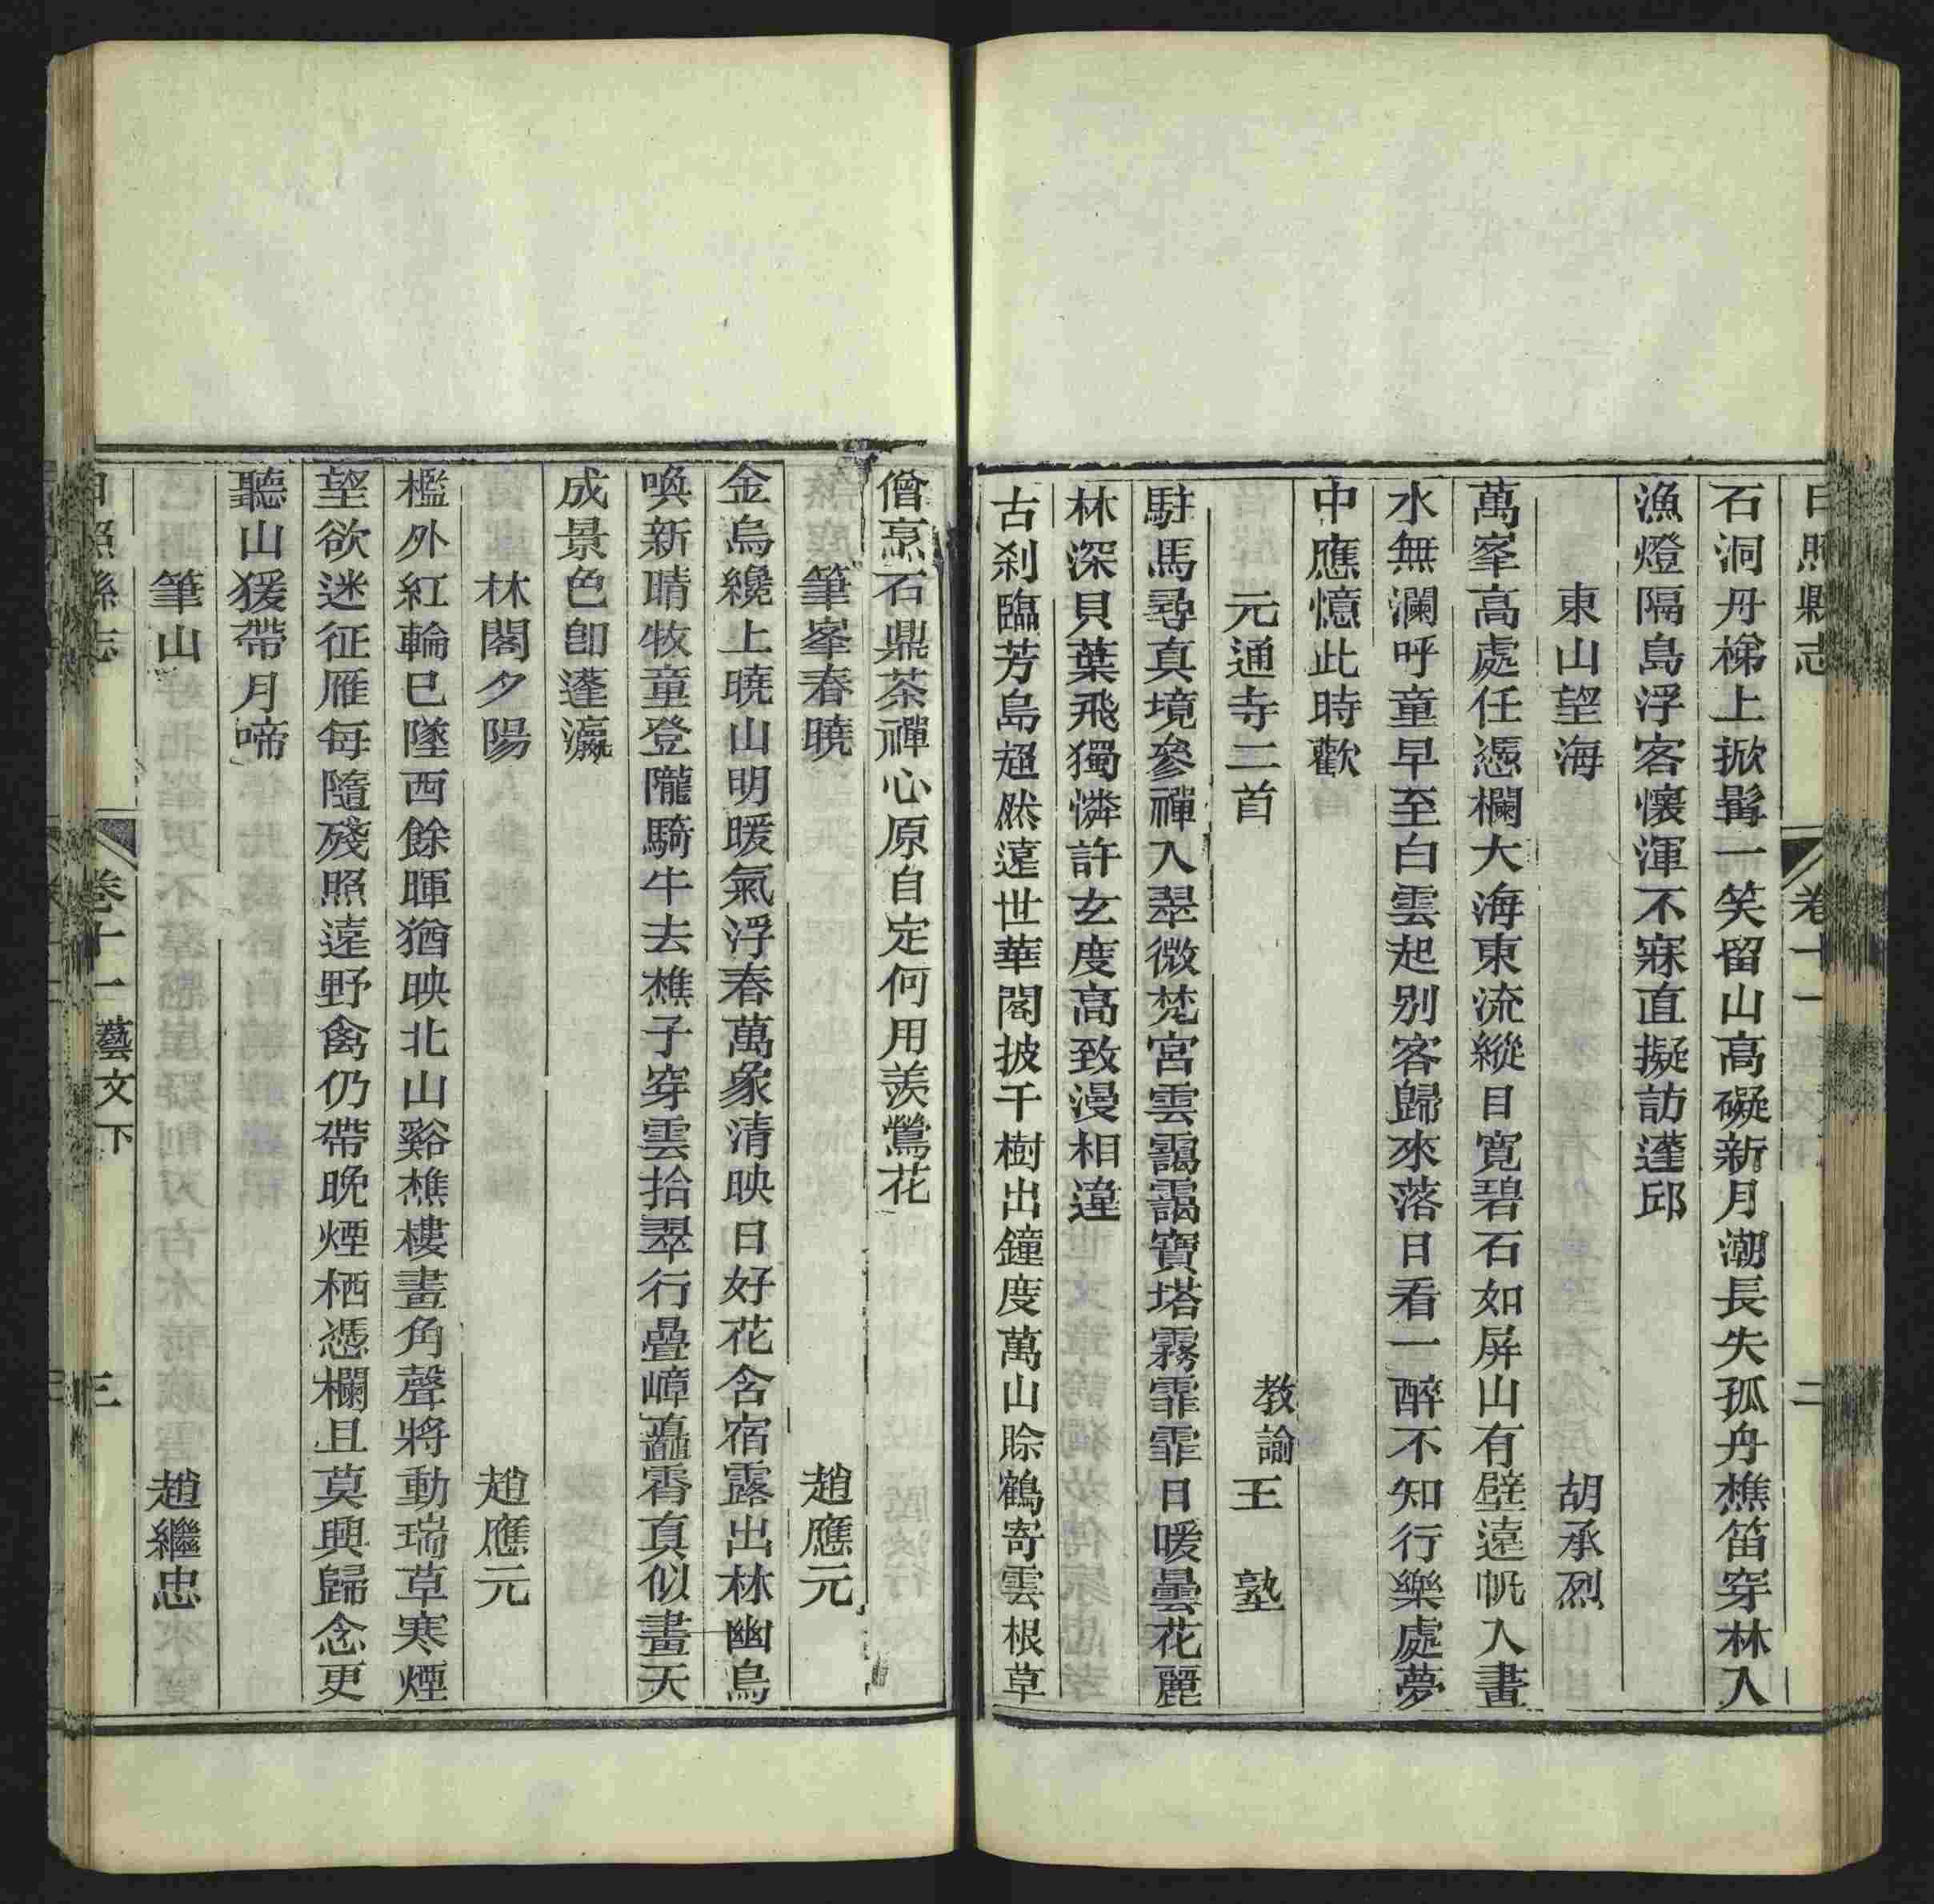 日照縣志 卷十一 二
石洞丹梯上掀髯一笑留山高礙新月潮長失孤舟樵笛穿林入
漁燈隔島浮客懷渾不寐直擬訪蓬邱
東山望海 胡承烈
萬峯高處任憑欄大海東流縱目寬碧石如屏山有壁遠帆入畫
水無瀾呼童早至白雲起別客歸來落日看一醉不知行樂處夢
中應憶此時歡
元通寺二首 教諭王 塾
駐馬尋真境參禪入翠微梵宮雲靄靄寶塔霧霏霏日暖曇花麗
林深貝葉飛獨憐許玄度高致漫相違
古刹臨芳島超然遠世華閣披千樹出鐘度萬山賒鶴寄雲根草
僧烹石鼎茶禪心原自定何用羨鶯花
筆峯春曉 趙應元
金烏纔上曉山明暖氣浮春萬象清映日好花含宿露出林幽鳥
喚新晴牧童登隴騎牛去樵子穿雲拾翠行疊嶂矗霄真似畫天
成景色卽蓬瀛
林閣夕陽 趙應元
檻外紅輪已墜西餘暉猶映北山谿樵樓畫角聲將動瑞草寒煙
望欲迷征雁每隨殘照遠野禽仍帶晚煙栖憑欄且莫興歸念更
聽山猨帶月啼
筆山 趙繼忠
日照縣志 卷十一藝文下 三